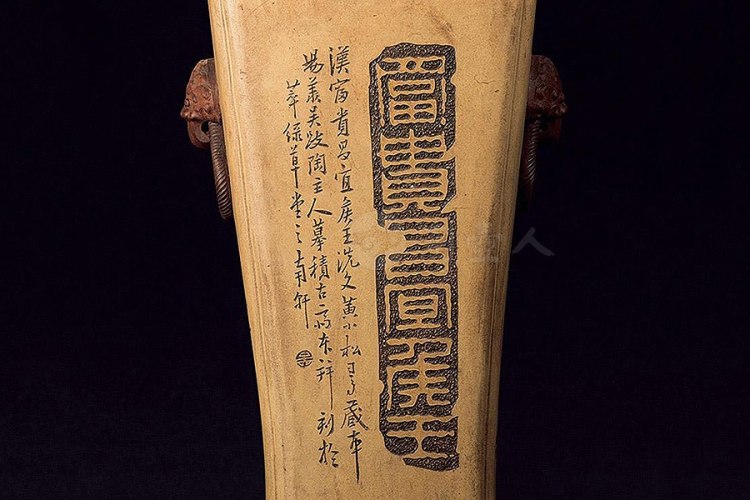 富貴昌宜侯王
漢富貴昌宜矦王洗文黃小松司馬藏本
陽羨吴政陶主人摹積古齋本并刻於
萃綠草堂之南軒